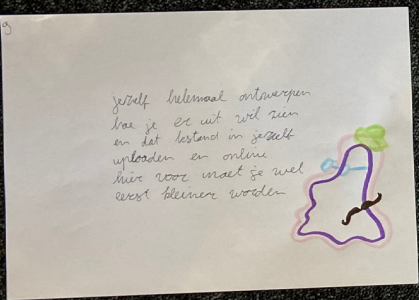 9
jezelf helemaal ontwerpen
hoe je er uit wil zien
en dat bestand in jezelf
uploaden en online
hier voor moet je wel
eerst kleiner worden